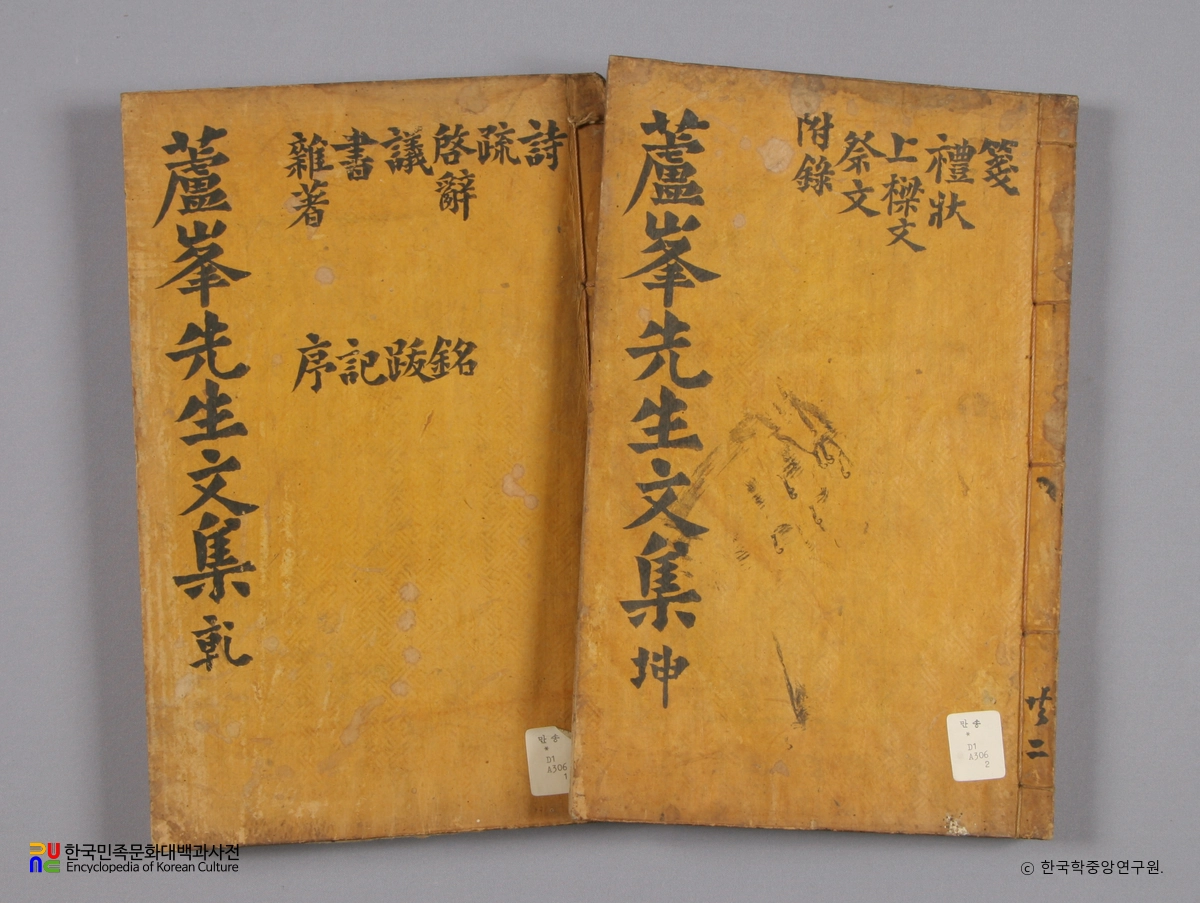 蘆峯先生文集 乾
詩
疏
啓辭
議
書
雜著
銘
跋
記
序
蘆峯先生文集 坤
箋
禮狀
上樑文
祭文
附錄
共二
만송
*
D1
A306
1
만송
*
D1
A306
2
한국민족문화대백과사전
Encyclopedia of Korean Culture
ⓒ 한국학중앙연구원.